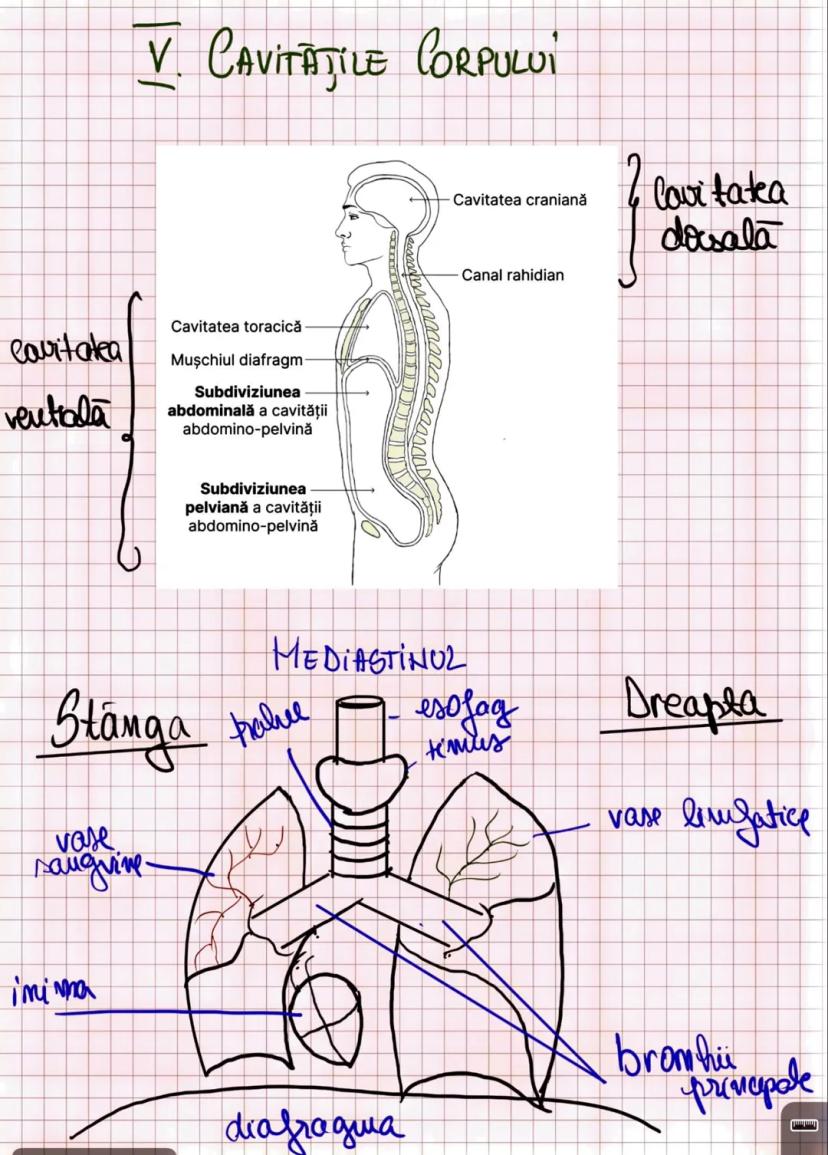 V. CAVITĂȚILE CORPULUI
Cavitatea craniană
Canal rahidian
Cavitatea
dorsală
Cavitatea toracică
Mușchiul diafragm
Subdiviziunea
abdominală a cavității
abdomino-pelvină
Subdiviziunea
pelviană a cavității
abdomino-pelvină
cavitatea
ventrală
MEDIASTINUL
Stânga
esofag
timus
Dreapta
vase
sangvine
vase limfatice
inima
bronhii
principale
diafragma